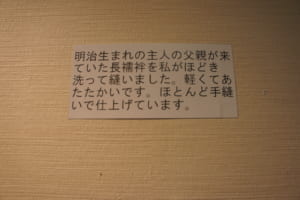 明治生まれの主人の父親が来
ていた長襦袢を私がほどき
洗って縫いました。軽くてあ
たたかいです。ほとんど手縫
いで仕上げています。